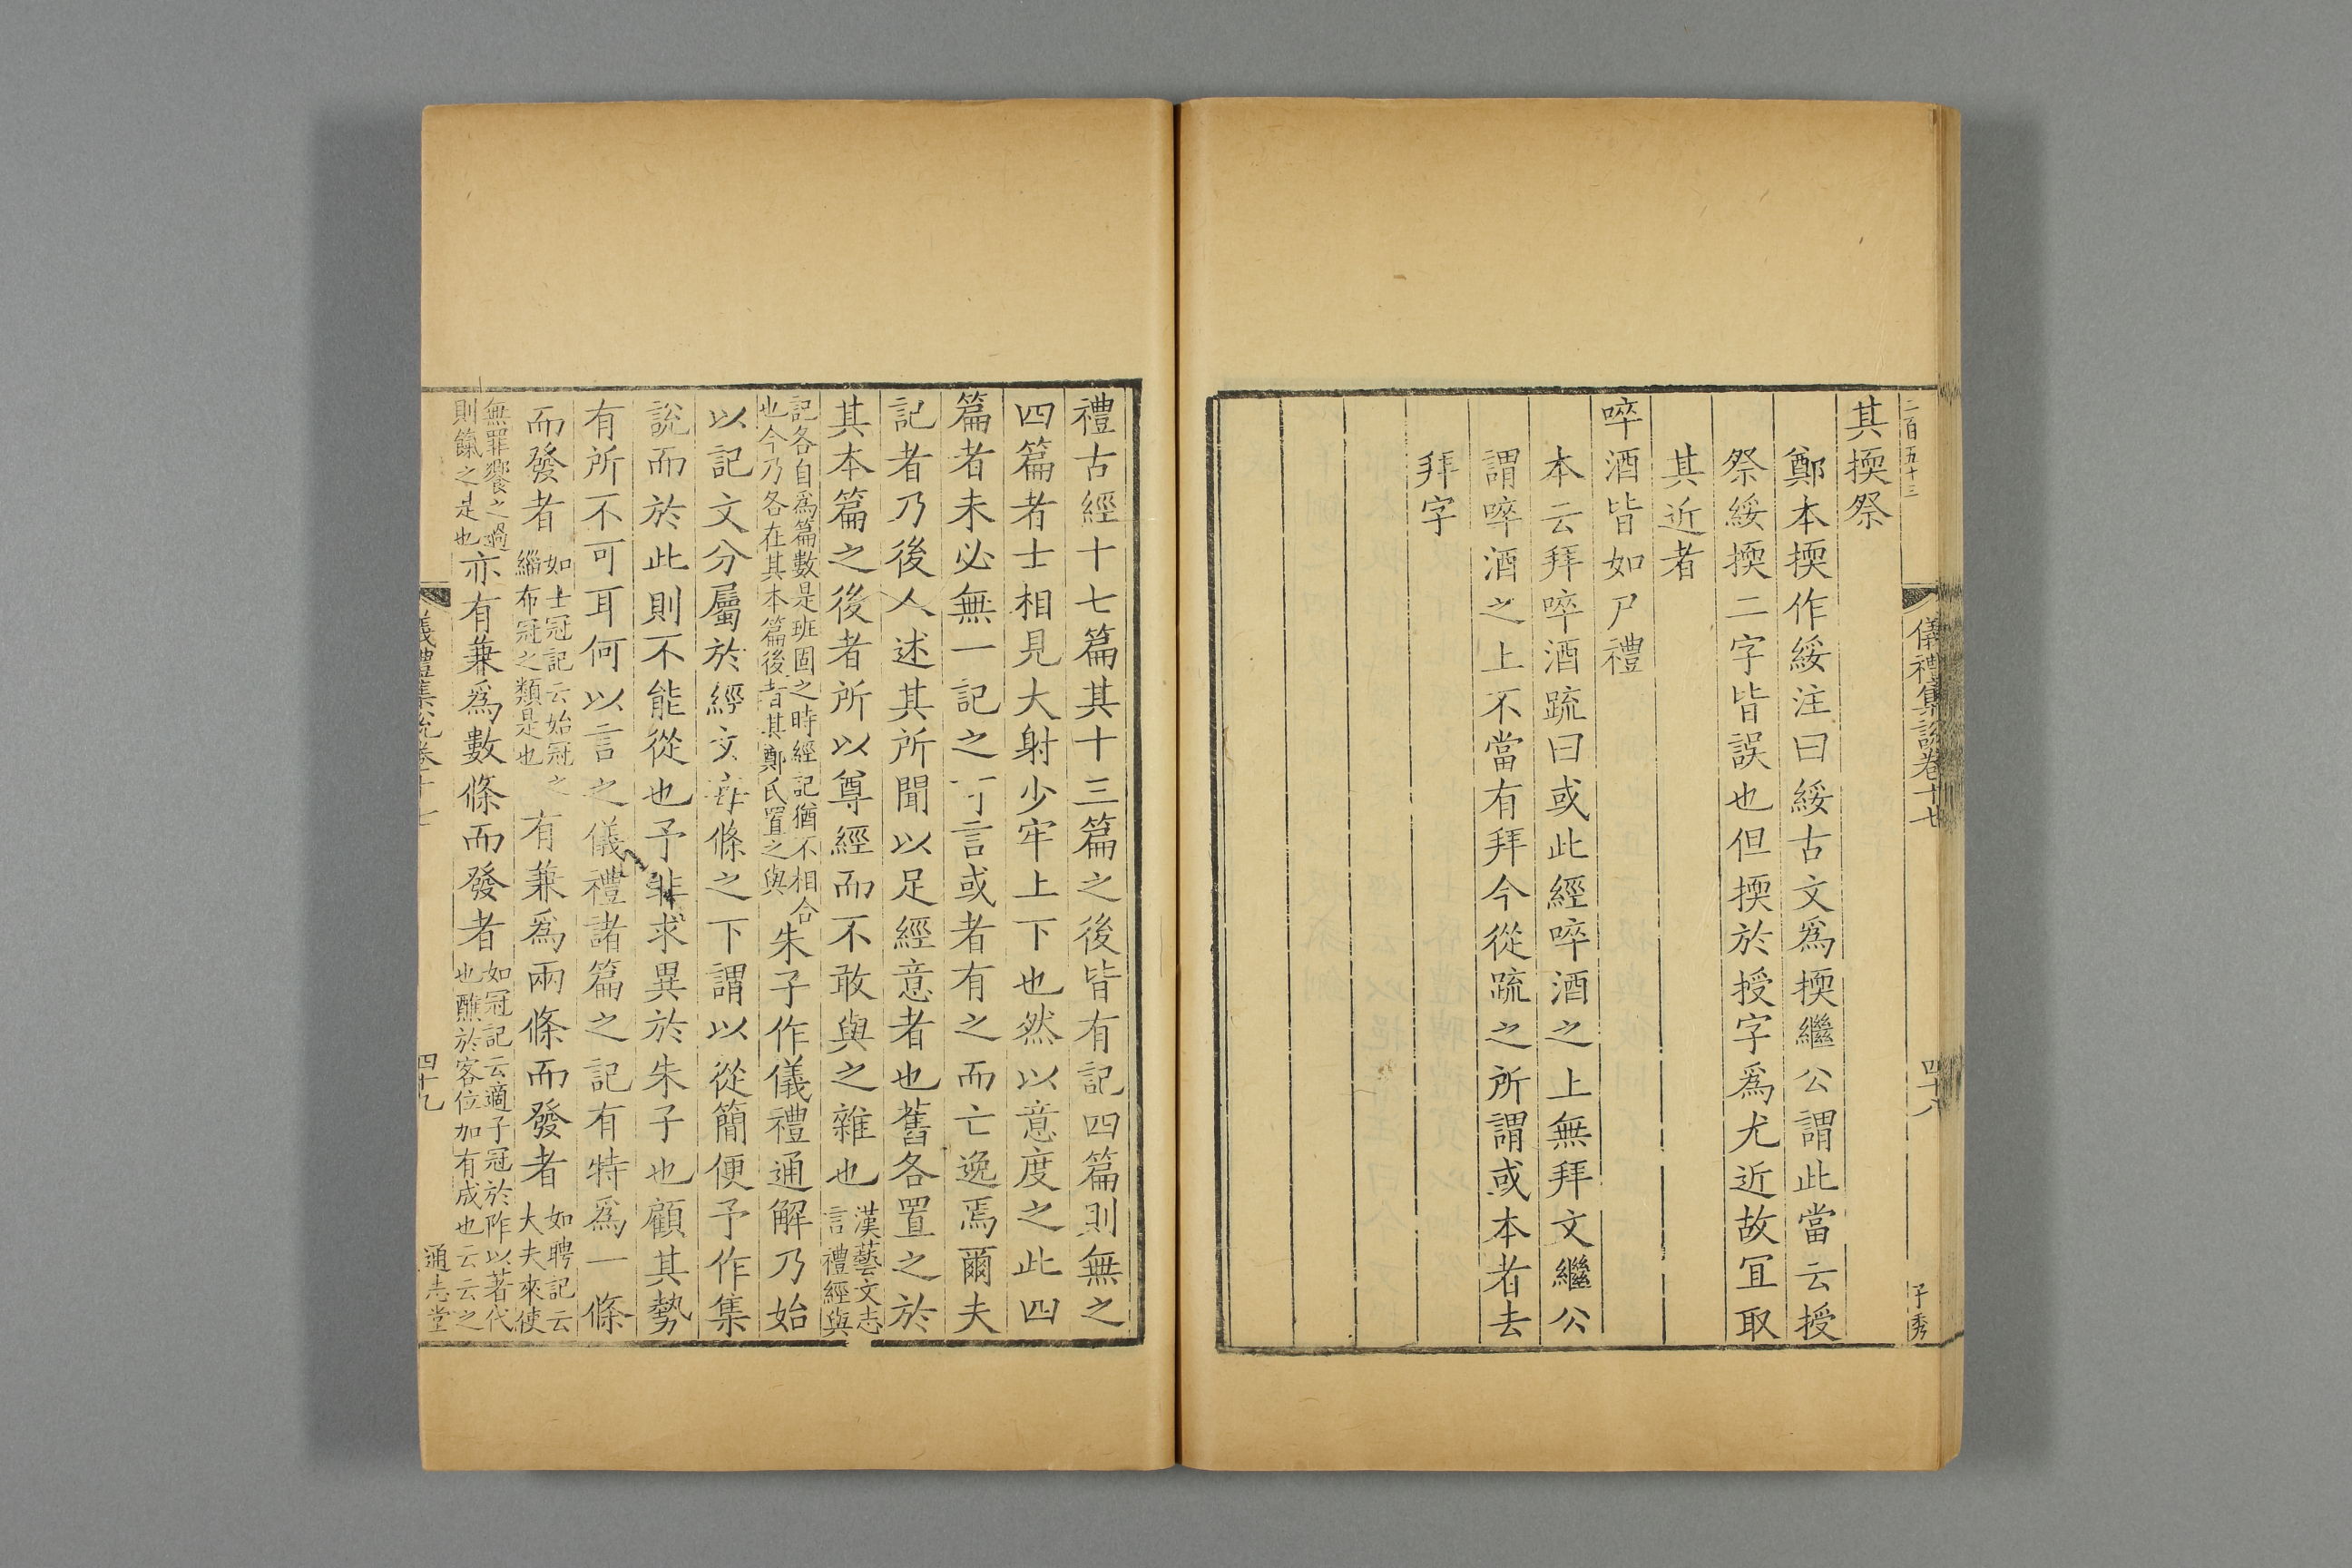 二百五十三
儀禮集說卷十七
四十八
子秀
其擩祭
鄭本擩作綏注曰綏古文爲擩繼公謂此當云授
祭綏擩二字皆誤也但擩於授字爲尤近故宜取
其近者
啐酒皆如尸禮
本云拜啐酒疏曰或此經啐酒之上無拜文繼公
謂啐酒之上不當有拜今從疏之所謂或本者去
拜字
禮古經十七篇其十三篇之後皆有記四篇則無之
四篇者士相見大射少牢上下也然以意度之此四
篇者未必無一記之可言或者有之而亡逸焉爾夫
記者乃後人述其所聞以足經意者也舊各置之於
其本篇之後者所以尊經而不敢與之雜也漢藝文志言禮經與
記各自爲篇數是班固之時經記猶不相合也今乃各在其本篇後者其鄭氏置之與朱子作儀禮通解乃始
以記文分屬於經文每條之下謂以從簡便予作集
說而於此則不能從也予非求異於朱子也顧其勢
有所不可耳何以言之儀禮諸篇之記有特爲一條
而發者如士冠記云始冠之緇布冠之類是也有兼爲兩條而發者如聘記云大夫來使
無罪饗之過則餼之是也亦有兼爲數條而發者如冠記云適子冠於阼以著代也醮於客位加有成也云云之
儀禮集說卷十七
四十九
通志堂